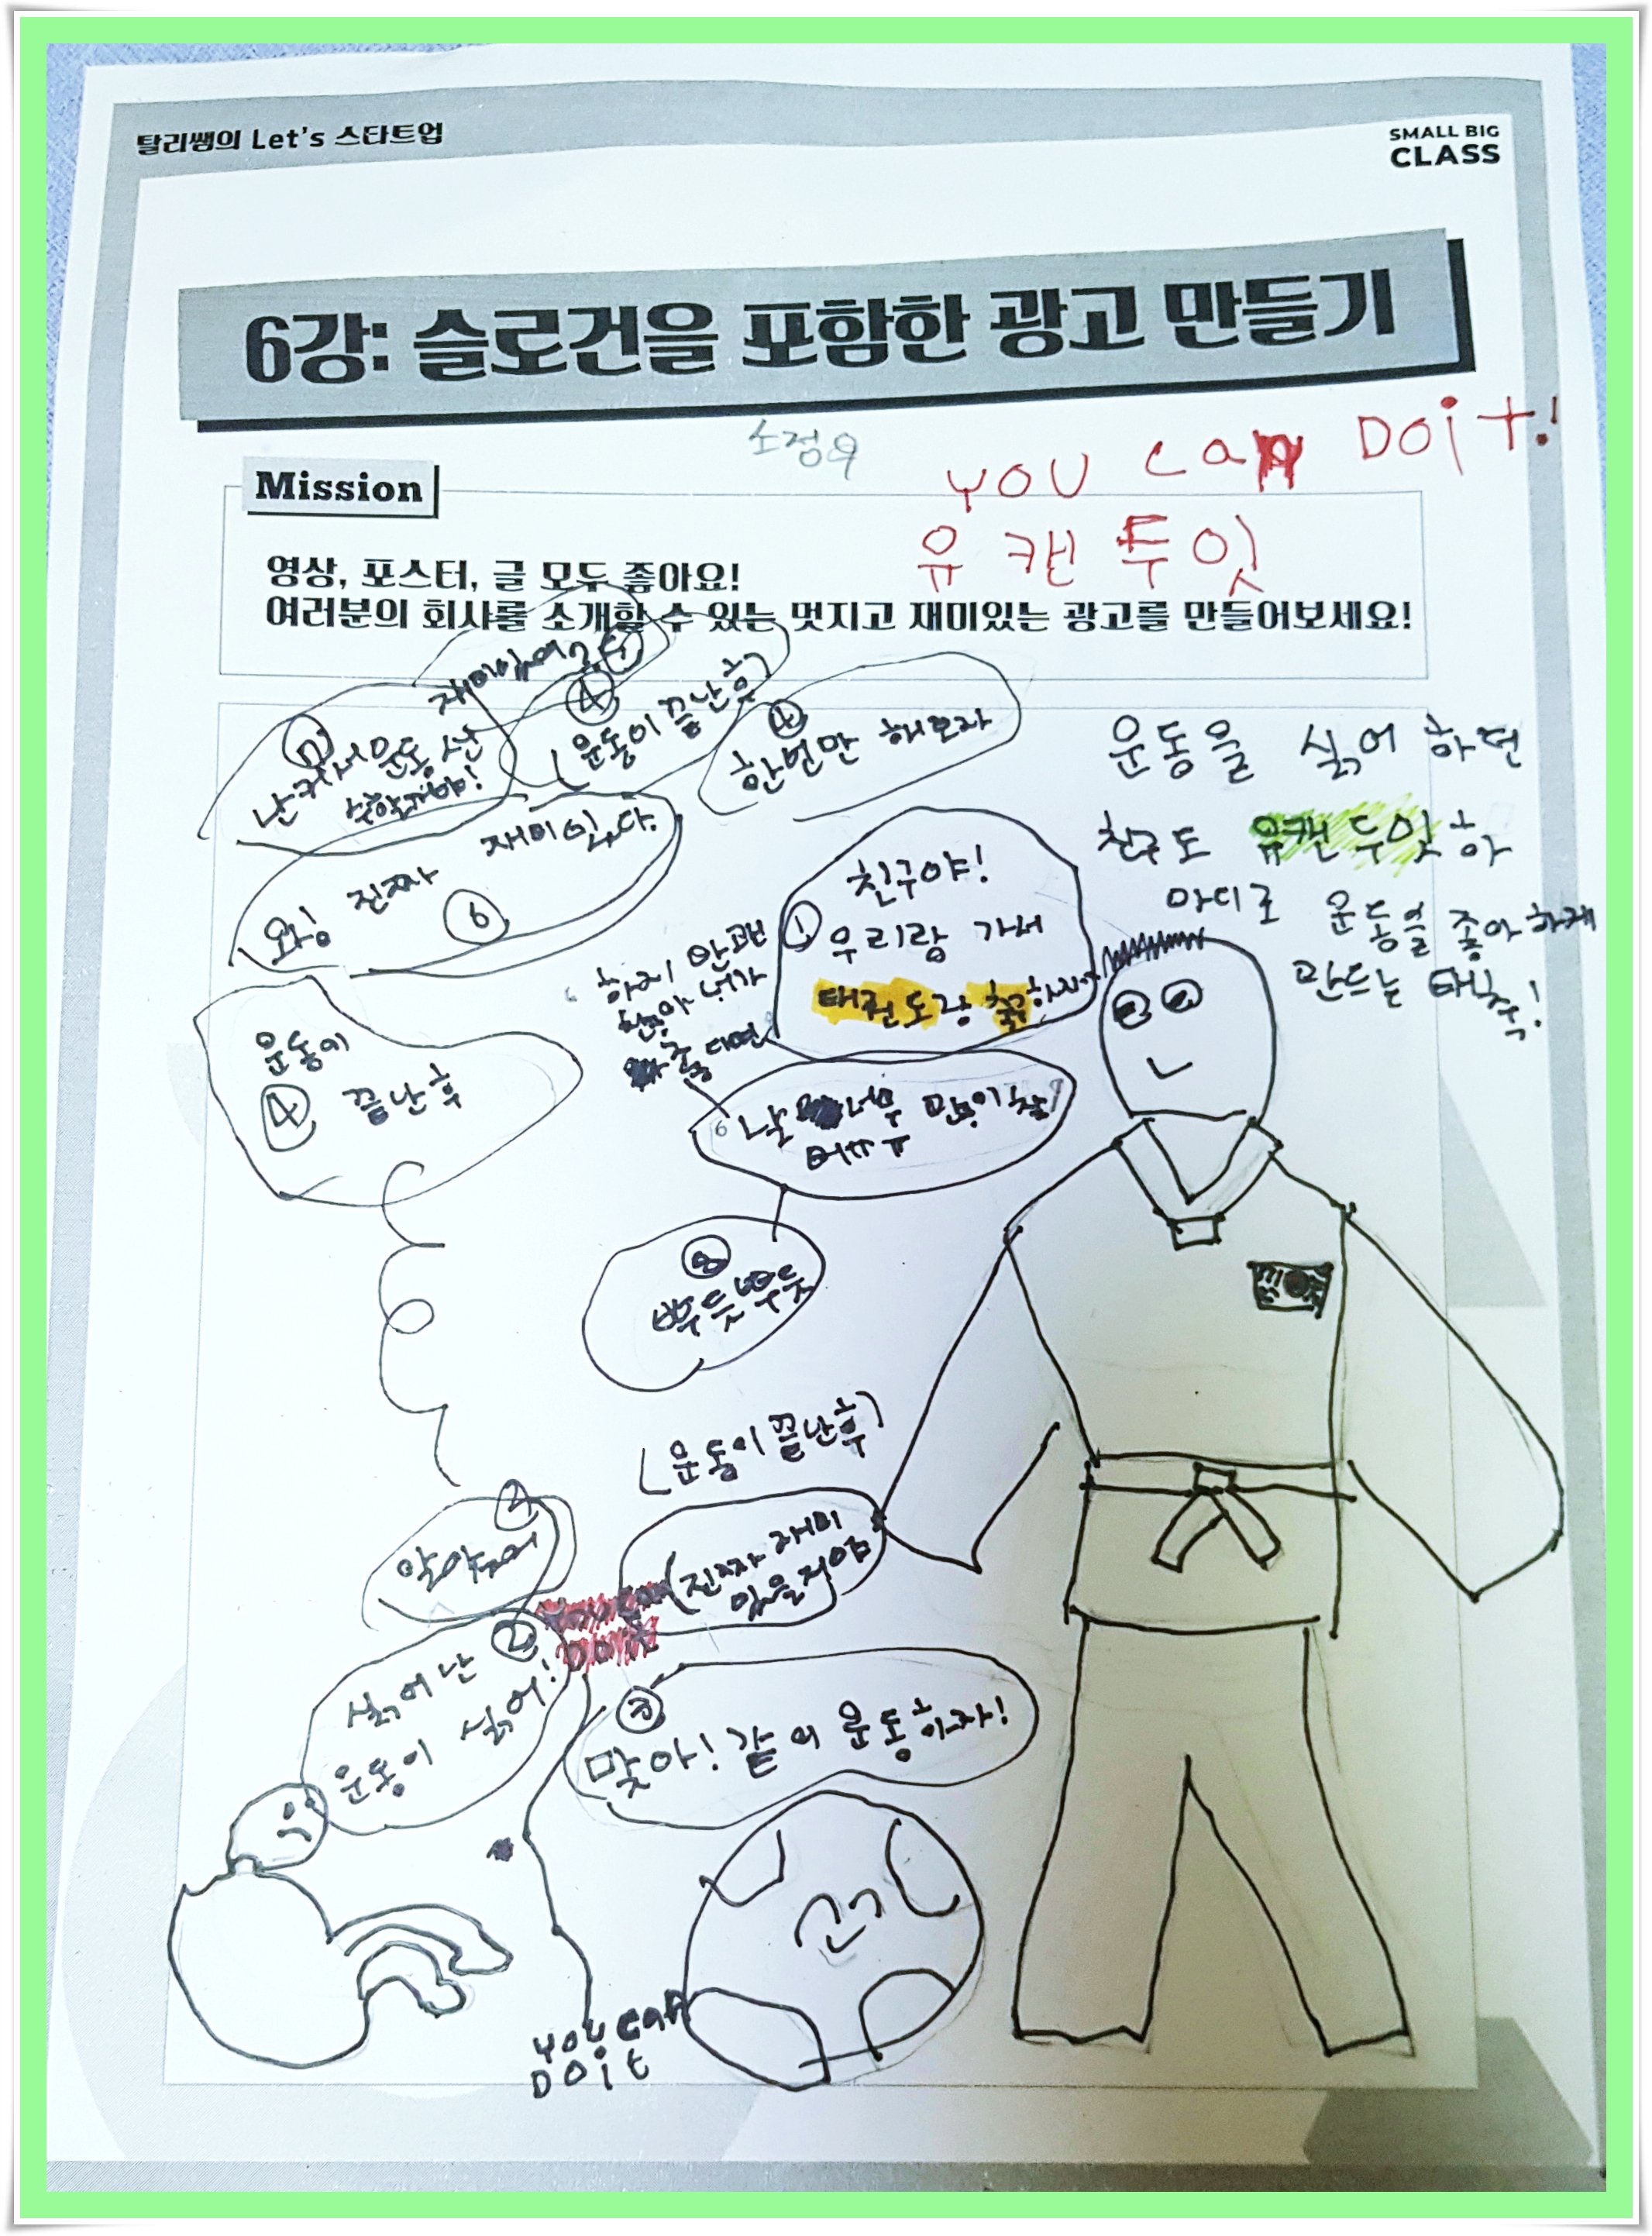 탈리쌤의 Let's 스타트업
SMALL BIG
CLASS
6강: 슬로건을 포함한 광고 만들기
소정우
YOU CAN DOiT!
유 캔 두 잇
Mission
영상, 포스터, 글 모두 좋아요!
여러분의 회사를 소개할 수 있는 멋지고 재미있는 광고를 만들어보세요!
재미있어
④
(운동이 끝난 후)
④
한번만 해보자
⑦
난 커서 운동 선
운동을 싫어 하던
친구도 유캔 두잇 하
마디로 운동을 좋아하게
만드는 태축!
와! 진짜 재미있다.
⑥
친구야!
① 우리랑 가서
태권도랑 축구하자
하기
운동이
④ 끝난 후
⑧
뿌듯뿌듯
(운동이 끝난 후)
②
알았어
(진짜 재미
있을거야
You can
Do it
②
싫어 난
운동이 싫어!
③
맞아! 같이 운동하자!
you can
Doit